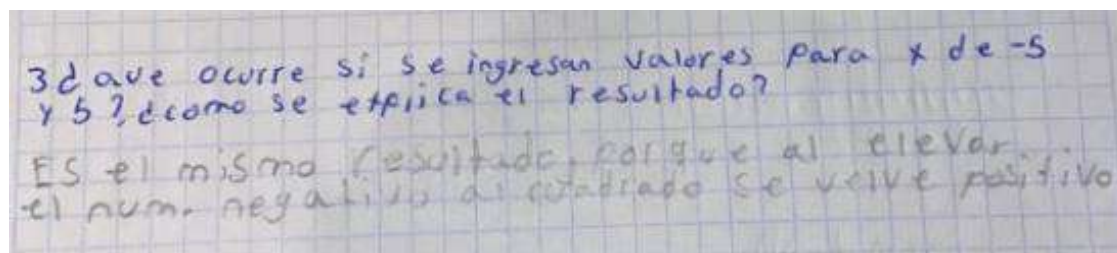 3¿Que ocurre si se ingresan valores para x de -5
y 5?, ¿como se explica el resultado?
ES el mismo resultado, porque al elevar
el num. negativo al cuadrado se velve positivo